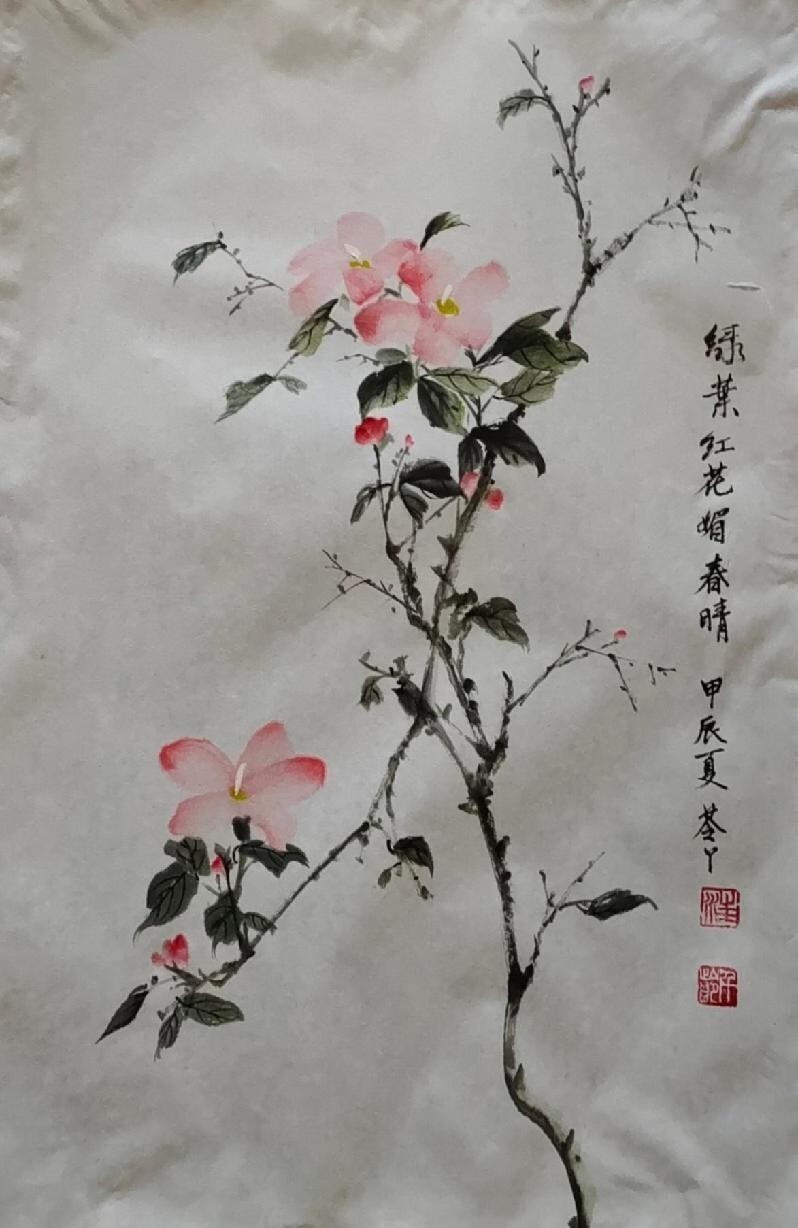 绿葉红花媚春晴 甲辰夏 荃丫